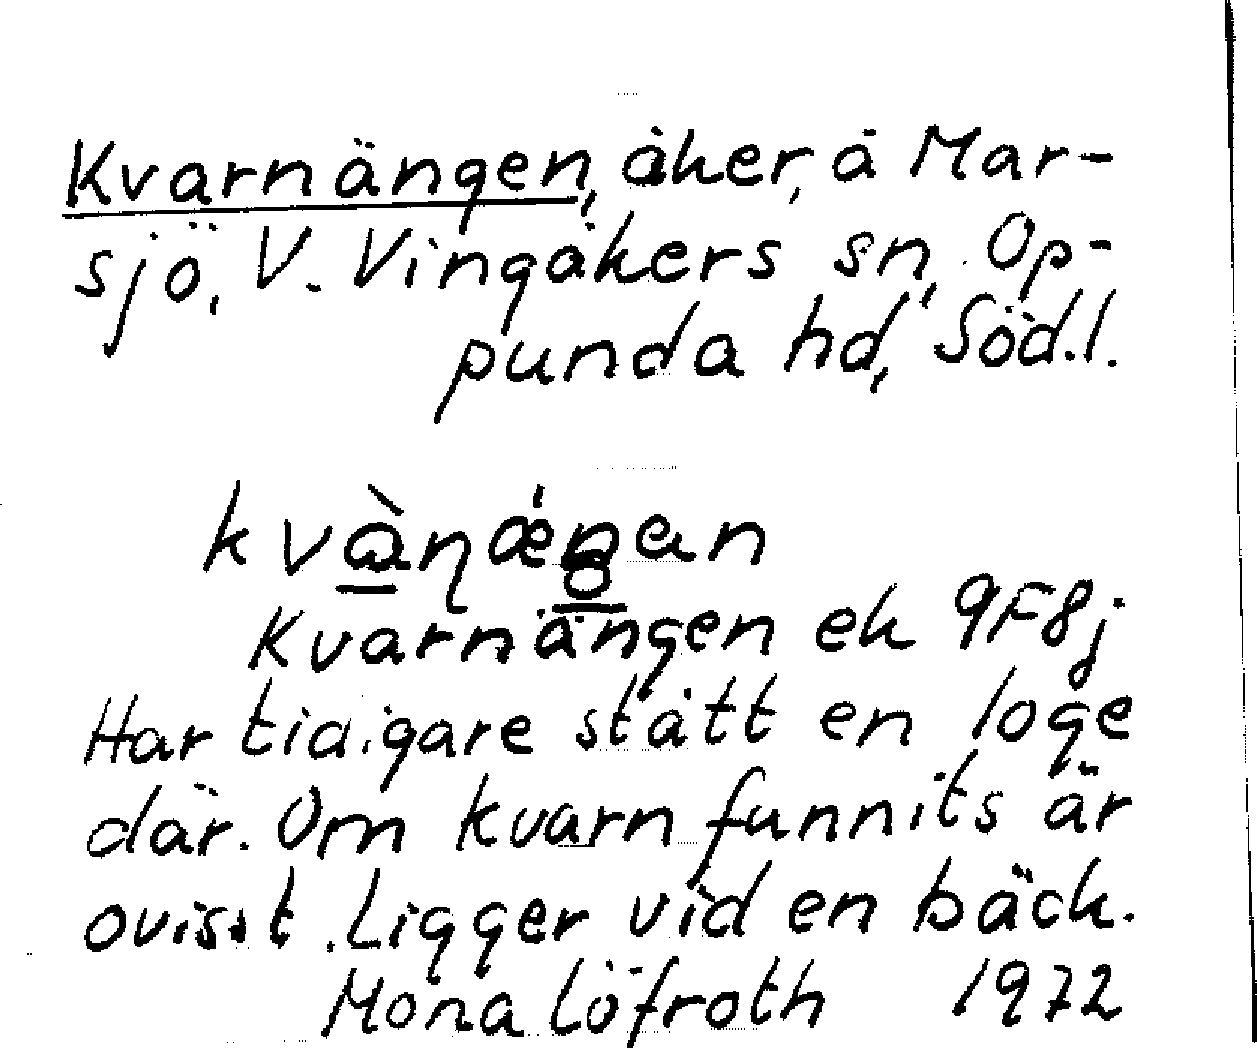 Kvarnängen, åker, å Mar-
sjö, V. Vingåkers sn, Op-
punda hd, Söd.l.
Kvarnängen ek 9F8j
Har tidigare stått en loge
där. Om kvarn funnits är
ovisst. Ligger vid en bäck.
Mona Löfroth 1972